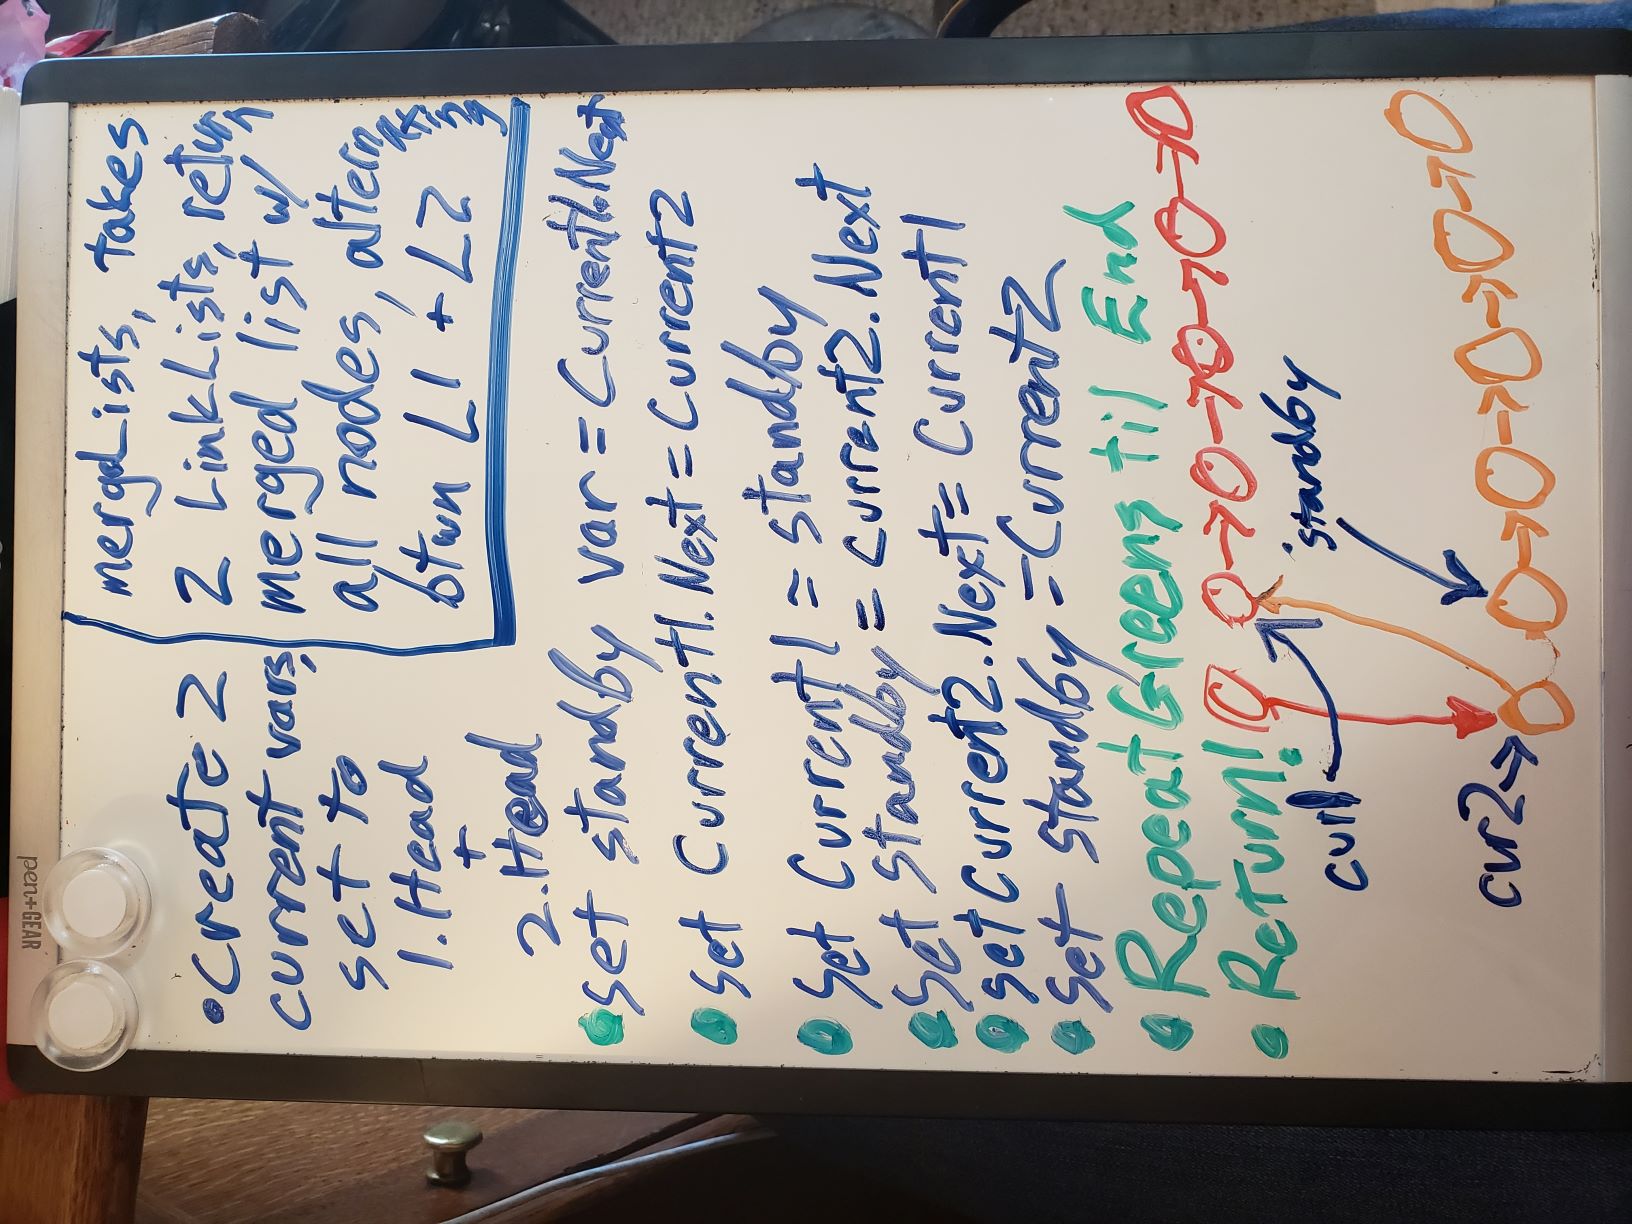 pen+GEAR
mergeLists, takes
2 LinkLists, return
merged list w/
all nodes, alternating
btwn L1 + L2
• Create 2
current vars,
set to
1. Head
+
2. Head
• Set standby var = Current1.Next
• Set Current1.Next = Current2
• Set Current1 = standby
• Set Standby = current2.Next
• set Current2.Next = Current1
• Set standby = Current2
• Repeat Greens til End
• Return!
cur1
standby
cur2